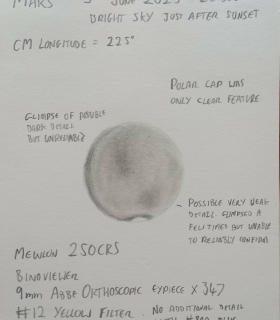 MARS
JUNE 2023
BRIGHT SKY JUST AFTER SUNSET
CM LONGITUDE = 225°
POLAR CAP WAS
ONLY CLEAR FEATURE
GLIMPSE OF POSSIBLE
DARK DETAIL
BUT UNRELIABLE
POSSIBLE VERY WEAK
DETAIL. GLIMPSED A
FEW TIMES BUT UNABLE
TO RELIABLY CONFIRM
MEWLON 250CRS
BINOVIEWER
9mm ABBE ORTHOSCOPIC EYEPIECE X 347
#12 YELLOW FILTER. NO ADDITIONAL DETAIL
WITH